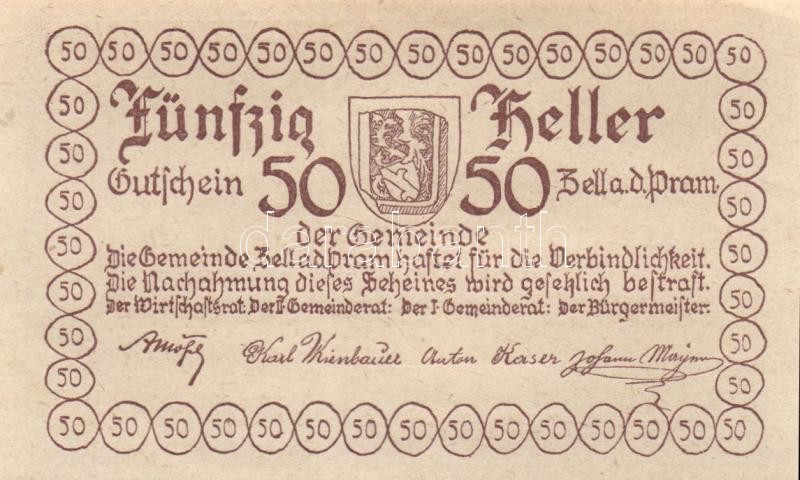 50 50 50 50 50 50 50 50 50 50 50 50 50 50 50 50 50 50
Fünfzig Heller
Gutschein 50 50 Zell a. d. Pram.
der Gemeinde
Die Gemeinde Zell a.d. Pram haftet für die Verbindlichkeit.
Die Nachahmung dieses Scheines wird gesetzlich bestraft.
Der Wirtschaftsrat: Der II. Gemeinderat: Der I. Gemeinderat: Der Bürgermeister:
Karl Kienbauer Anton Kaser Johann
50 50 50 50 50 50 50 50 50 50 50 50 50 50 50 50 50 50